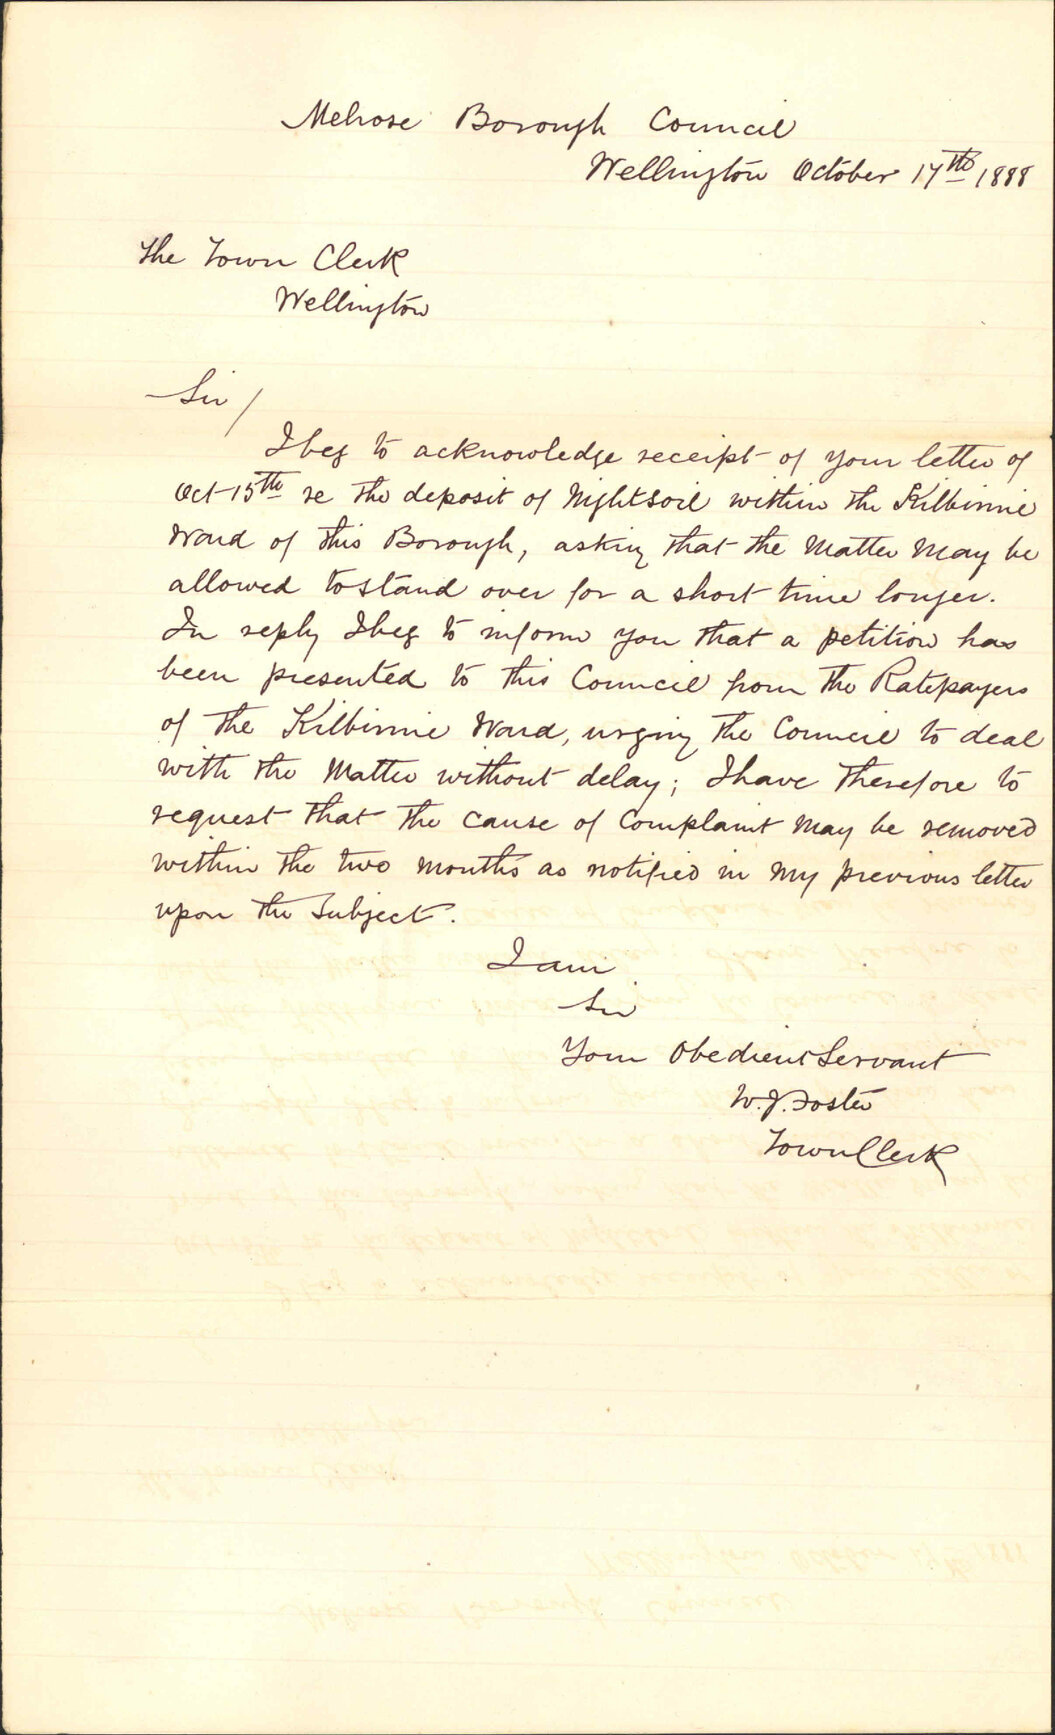 Melrose Borough Council
Wellington October 17th 1888
The Town Clerk
Wellington
Sir /
I beg to acknowledge receipt of your letter of
Oct 15th re the deposit of Nightsoil within the Kilbirnie
Ward of this Borough, asking that the Matter May be
allowed to stand over for a short time longer.
In reply I beg to inform you that a petition has
been presented to this Council from the Ratepayers
of the Kilbirnie Ward, urging the Council to deal
with the Matter without delay; I have therefore to
request that the cause of Complaint May be removed
within the two Months as notified in My previous letter
upon the Subject.
I am
Sir
Your Obedient Servant
W.J. Foster
Town Clerk